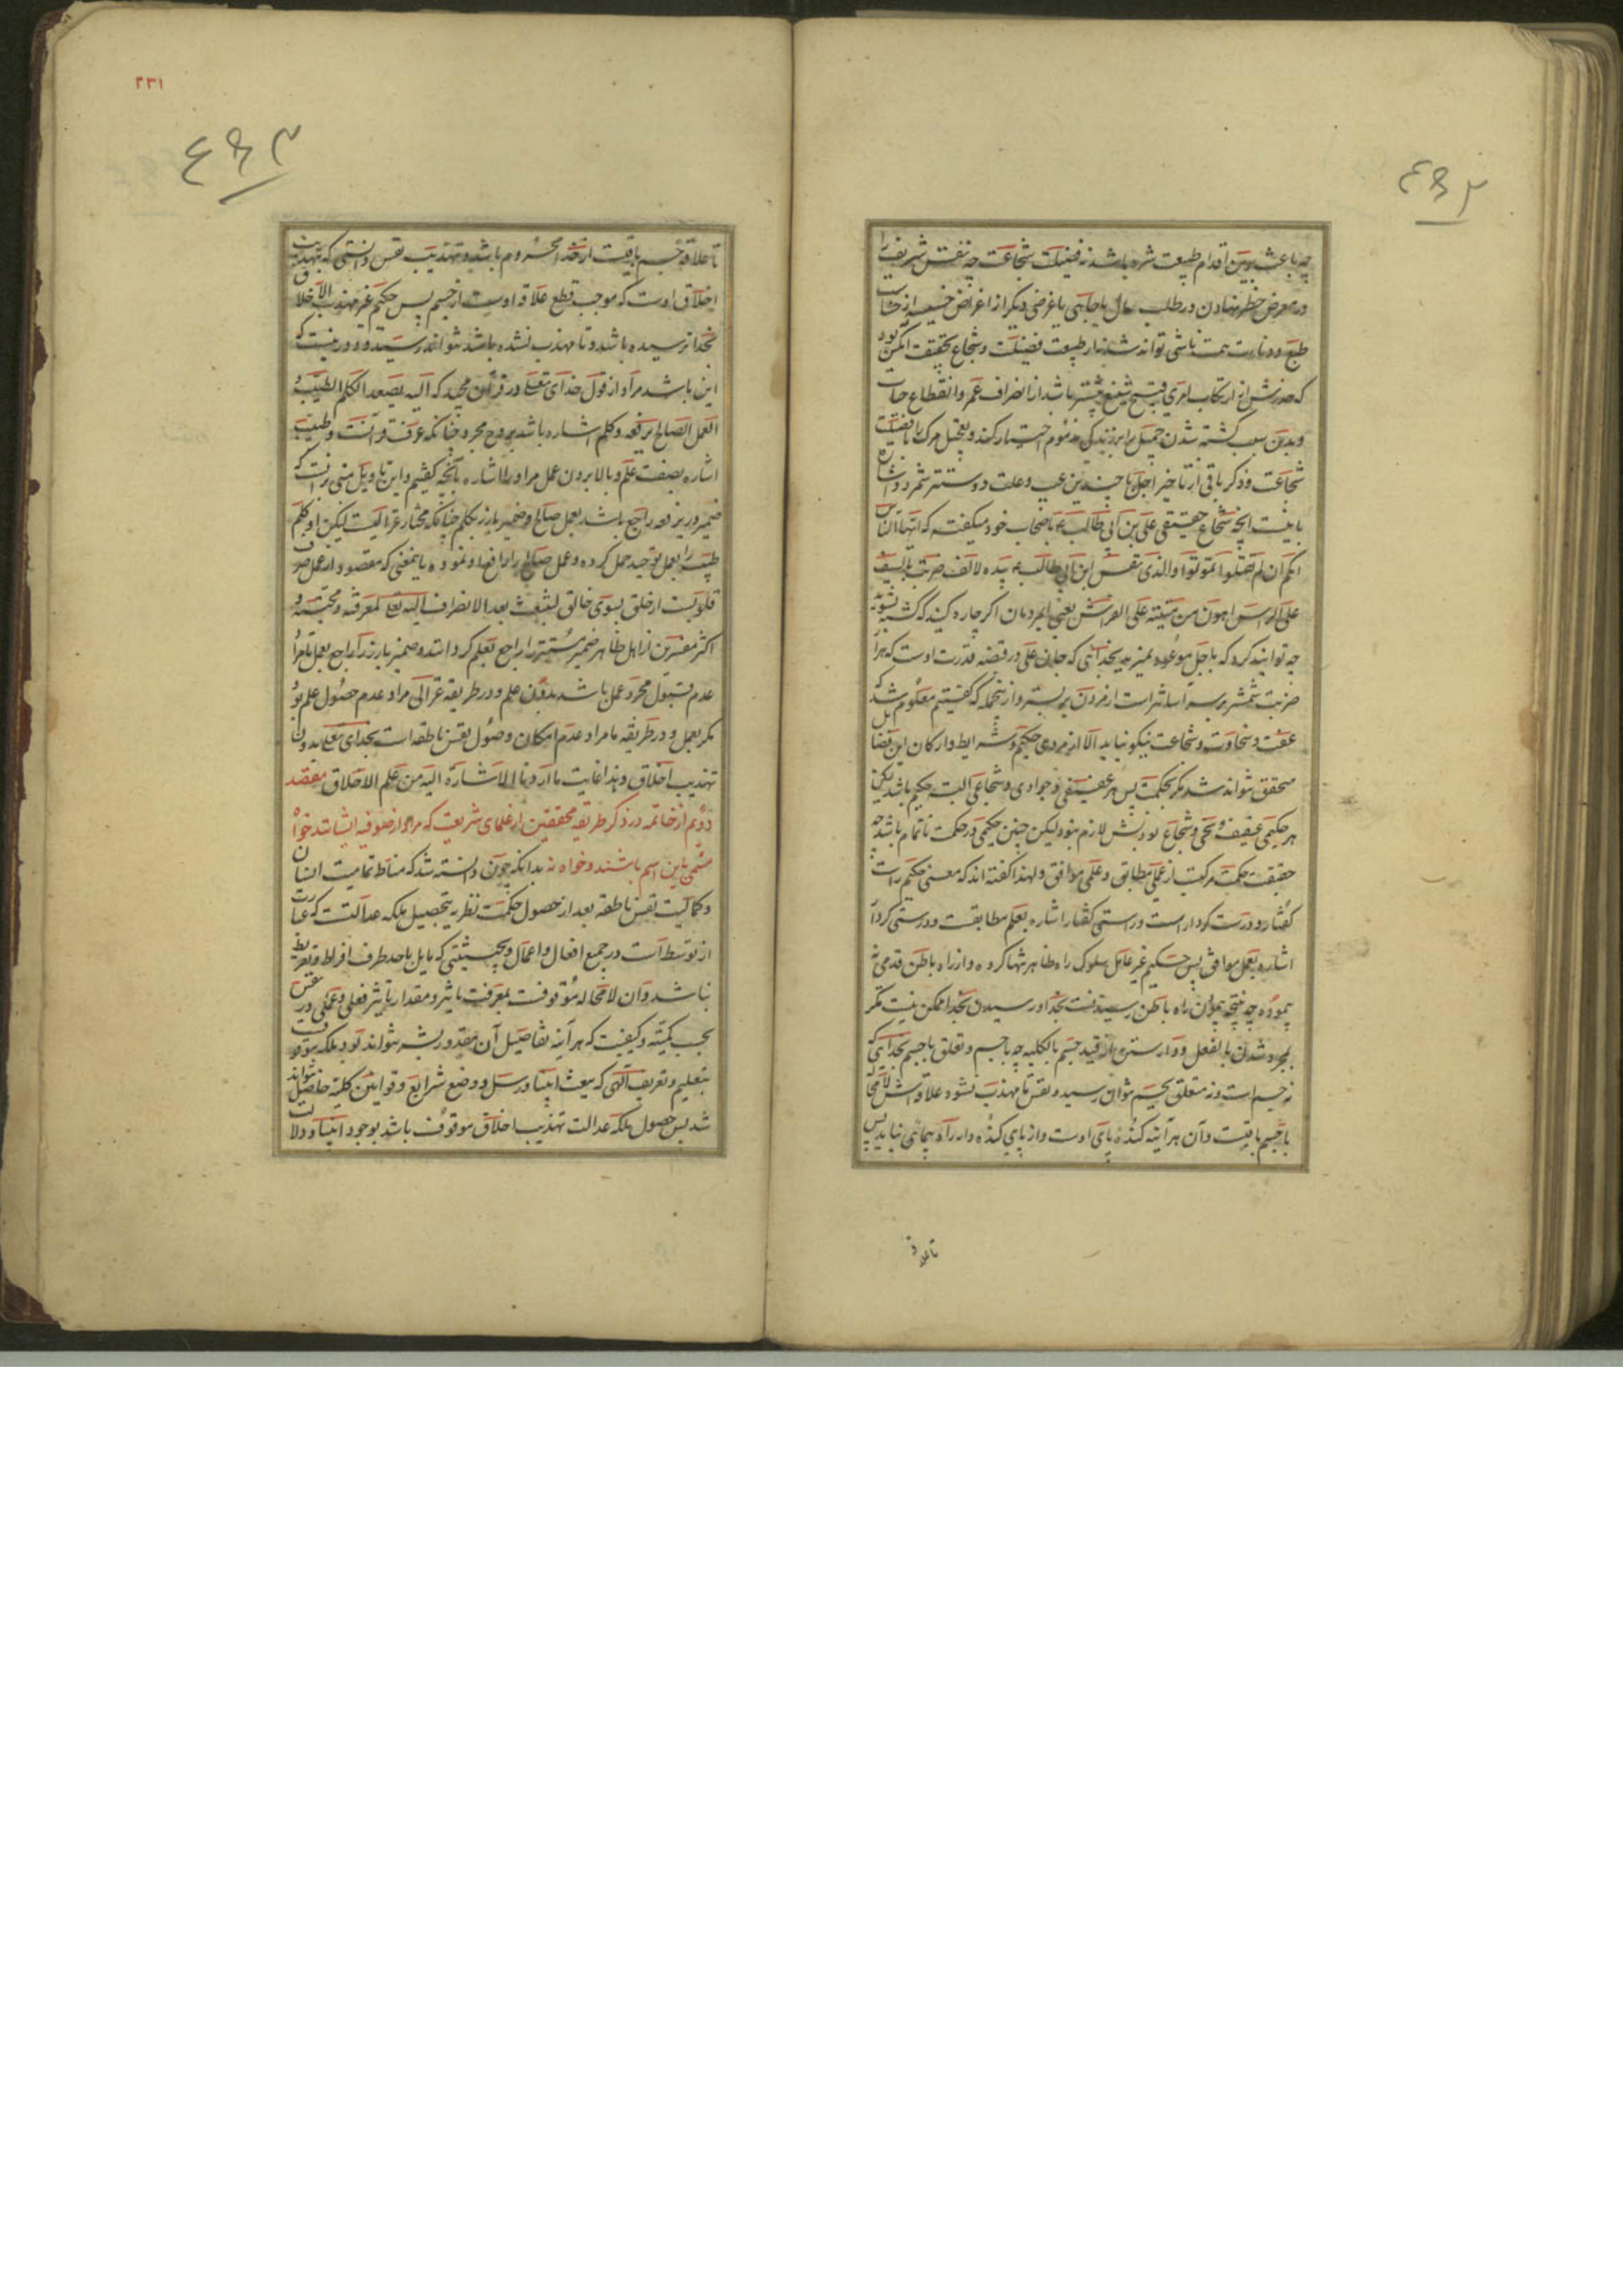 ۴۶۲
چه باعث برین اقدام طبیعت شره باشد نه فضیلت شجاعت چه نفس شریف را
در معرض خطر نهادن در طلب مال یا جاهی یا غرضی دیگر از اغراض خسیسه از خساست
طبع و دنائت همت ناشی تواند شد نه از طبیعت فضیلت و شجاع بحقیقت آنکس بود
که حذرش از ارتکاب امری قبیح شنیع بیشتر باشد از انصراف عمر و انقطاع حیات
و بدین سبب کشته شدن جمیل را بر زندگی مذموم اختیار کند و تعجیل مرگ را با فضیلت
شجاعت و ذکر باقی از تاخیر اجل با چندین عیب و علت دوستتر شمرد و اشاره
باینست آنچه شجاع حقیقی علی بن ابی طالب ع باصحاب خود میگفته که ایها الناس
انکم ان لم تقتلوا تموتوا والذی نفس ابن ابی طالب بیده لالف ضربة بالسیف
علی الراس اهون من میتة علی الفراش یعنی ای مردمان اگر چاره کنید که کشته نشوید
چه توانید کرد که باجل موعود نمیرید بخدائی که جان علی در قبضه قدرت اوست که هزار
ضربت شمشیر بر سر آسانتر است از مردن بر بستر و از ینجمله که گفتیم معلوم شد که
عفت و سخاوت و شجاعت نیکو نیاید الا از مردی حکیم و شرایط و ارکان این فضایل
محقق نتواند شد مگر بحکمت پس هر عفیفی و جوادی و شجاعی البته حکیم باشد لیکن
هر حکیمی عفیف و سخی و شجاع بودنش لازم نبود لیکن چنین حکیمی در حکمت ناتمام باشد چه
حقیقت حکمت مرکبست از عملی مطابق و علمی موافق و لهذا گفته اند که معنی حکیم راست
گفتار و درست کردار است و راستی گفتار اشاره بعلم مطابقست و درستی کردار
اشاره بعمل موافق پس حکیم غیر عامل سلوک راه ظاهر تنها کرده و از راه باطن قدمی نه
پیموده چه نتیجه پیمودن راه باطن رسیدنست بخدا و رسیدن بخدا ممکن نیست مگر
بمجرد شدن بالفعل و وارستن از قید جسم بالکلیه چه با جسم و تعلق با جسم بخدایی که
نه جسم است و نه متعلق بجسم نتوان رسید و نفس تا مهذب نشود علاقه اش لا محاله
با جسم باقیست و آن هر آینه کنده پای اوست و از پای کنده دار راه پیمائی نیاید پس
تا علاقه
۲۳۱
۴۶۳
تا علاقه جسم باقیست از خدا محروم باشد و تهذیب نفس دانستی که تهذیب
اخلاق اوست که موجب قطع علاقه اوست از جسم پس حکیم غیر مهذب الاخلاق
بخدا نرسیده باشد و تا مهذب نشده باشد نتواند رسید و دور نیست که
این باشد مراد از قول خدای تعالی در قرآن مجید که الیه یصعد الکلم الطیب و
العمل الصالح یرفعه و کلم اشاره باشد بروح مجرد چنانکه عرف قرآنست و طیب
اشاره بصفت علم و بالا بردن عمل مر او را اشاره بآنچه گفتیم و این تاویل مبنی بر آنست که
ضمیر در یرفعه راجع باشد بعمل صالح و ضمیر بارز بکلم چنانکه مختار غزالیست لیکن او کلم
طیب را بعمل توحید حمل کرده و عمل صالح را رافع او نموده باینمعنی که مقصود از عمل صرف
قلوبست از خلق بسوی خالق لینبعث بعد الانصراف الیه تعالی لمعرفته و محبته و
اکثر مفسرین از اهل ظاهر ضمیر مستتر را راجع بعلم کرده اند و ضمیر بارز را راجع بعمل تا مراد
عدم قبول مجرد عمل باشد بدون علم و در طریقه غزالی مراد عدم حصول علم بود
مگر بعمل و در طریقه ما مراد عدم امکان وصول نفس ناطقه است بخدای تعالی بدون
تهذیب اخلاق و هذا غایت ما اردنا الاشارة الیه من علم الاخلاق مقصد
دوم از خاتمه در ذکر طریقه محققین از علمای شریعت که مراد از صوفیه ایشانند خواه
مسمی باین اسم باشند و خواه نه بدانکه چون دانسته شد که مناط تمامیت انسان
و کمالیت نفس ناطقه بعد از حصول حکمت نظریه بتحصیل ملکه عدالتست که عبارت
از توسط است در جمیع افعال و اعمال و بحیثیتی که مایل باحد طرف افراط و تفریط
نباشد و آن لا محاله موقوفست بمعرفت تاثیر و مقدار تاثیر فعلی و عملی در نفس
بحسب کمیت و کیفیت که هر آینه تفاصیل آن مقدور بشر نتواند بود بلکه موقوف
بتعلیم و تعریف الهی که ببعث انبیا و رسل و وضع شرایع و قوانین کلیه حاصل تواند
شد پس حصول ملکه عدالت تهذیب اخلاق موقوف باشد بوجود انبیا و دلالت